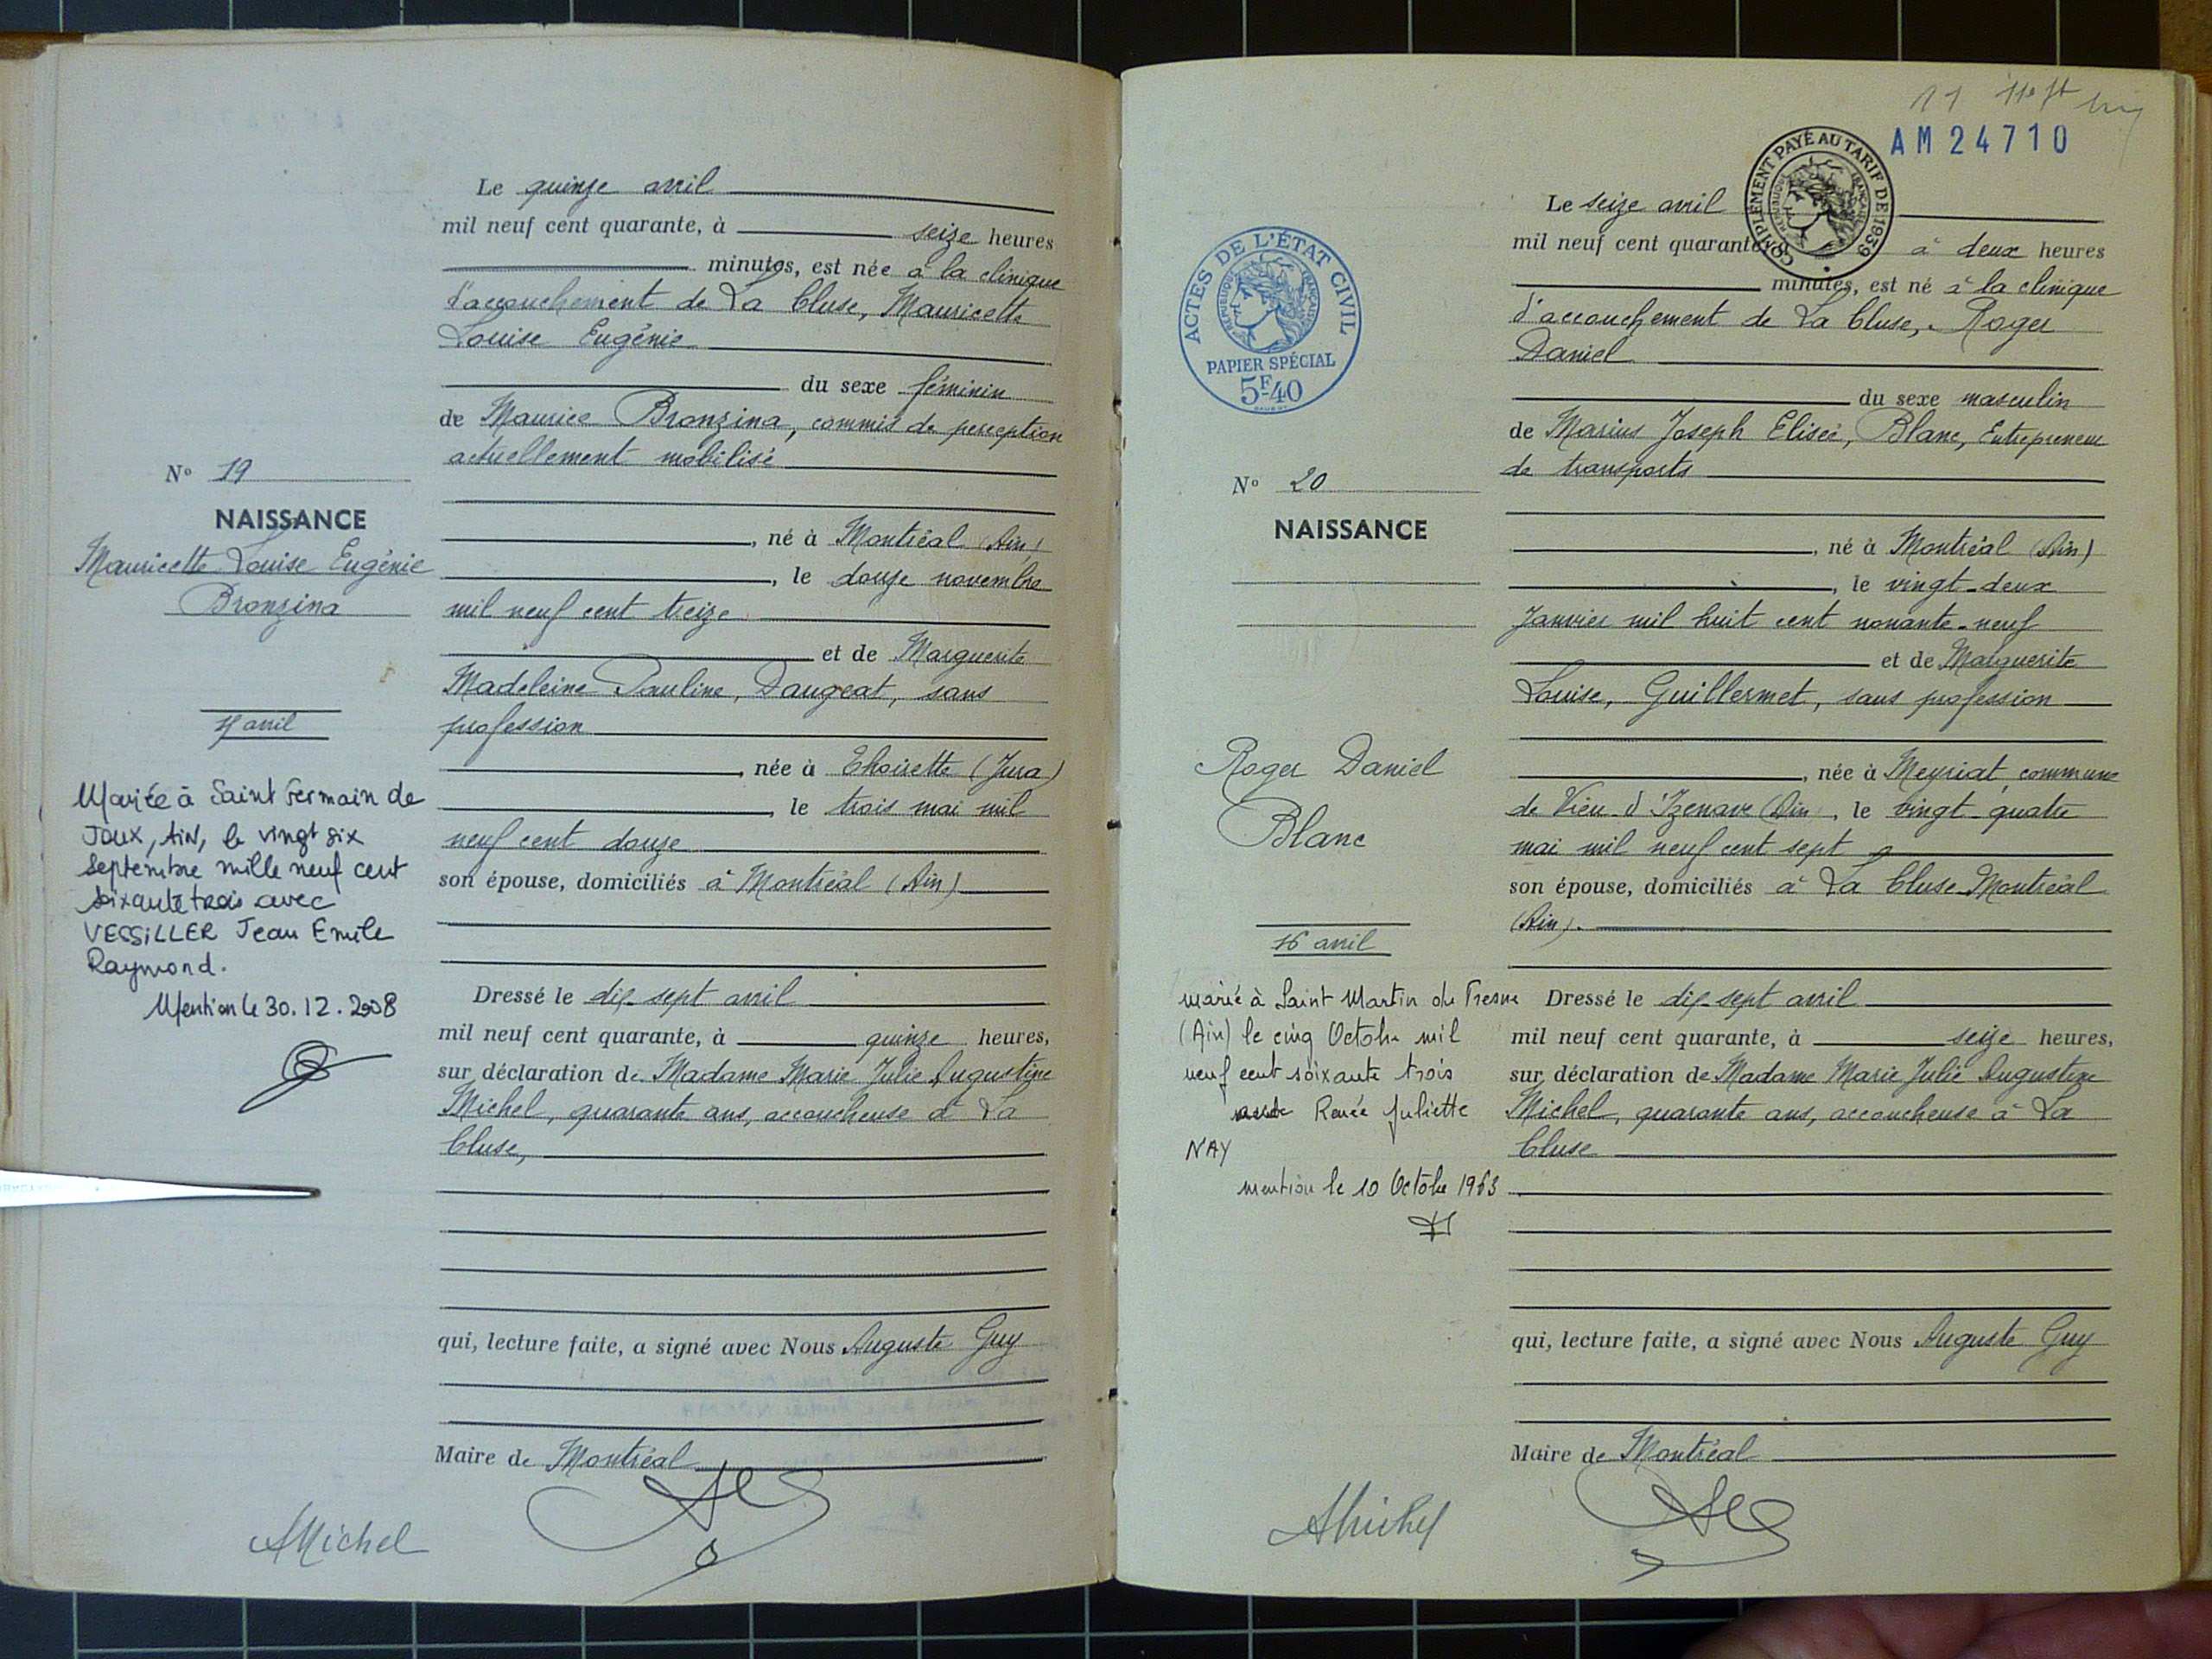 Le quinze avril
mil neuf cent quarante, à seize heures
minutes, est née à la clinique
d'accouchement de La Cluse, Mauricette
Louise Eugénie
du sexe féminin
de Maurice Bronzina, commis de perception
actuellement mobilisé
né à Montréal (Ain)
, le douze novembre
mil neuf cent treize
et de Marguerite
Madeleine Pauline, Daugeat, sans
profession
, née à Thoirette (Jura)
, le trois mai mil
neuf cent douze
son épouse, domiciliés à Montréal (Ain)
Dressé le dix sept avril
mil neuf cent quarante, à quinze heures,
sur déclaration de Madame Marie Julie Augustine
Michel, quarante ans, accoucheuse à La
Cluse,
qui, lecture faite, a signé avec Nous Auguste Guy
Maire de Montréal
AMichel
N° 19
NAISSANCE
Mauricette Louise Eugénie
Bronzina
avril
Mariée à Saint Germain de
JOUX, AIN, le vingt six
septembre mille neuf cent
soixante trois avec
VESSILLER Jean Emile
Raymond.
Mention le 30.12.2008
11
AM24710
COMPLÉMENT PAYÉ AU TARIF DE 1939
RÉPUBLIQUE FRANÇAISE
ACTES DE L'ÉTAT CIVIL
RÉPUBLIQUE FRANÇAISE
PAPIER SPÉCIAL
5F40
Le seize avril
mil neuf cent quarante à deux heures
minutes, est né à la clinique
d'accouchement de La Cluse, Roger
Daniel
du sexe masculin
de Marius Joseph Elisée, Blanc, Entrepreneur
de transports
, né à Montréal (Ain)
, le vingt-deux
Janvier mil huit cent nonante-neuf
et de Marguerite
Louise, Guillermet, sans profession
, née à Meyriat, commune
de Vieu-d'Izenave (Ain), le vingt quatre
mai mil neuf cent sept
son épouse, domiciliés à La Cluse-Montréal
(Ain).
Dressé le dix-sept avril
mil neuf cent quarante, à seize heures,
sur déclaration de Madame Marie Julie Augustine
Michel, quarante ans, accoucheuse à La
Cluse
qui, lecture faite, a signé avec Nous Auguste Guy
Maire de Montréal
AMichel
N° 20
NAISSANCE
Roger Daniel
Blanc
16 avril
marié à Saint Martin du Fresne
(Ain) le cinq Octobre mil
neuf cent soixante trois
avec Renée Juliette
NAY
mention le 10 Octobre 1963